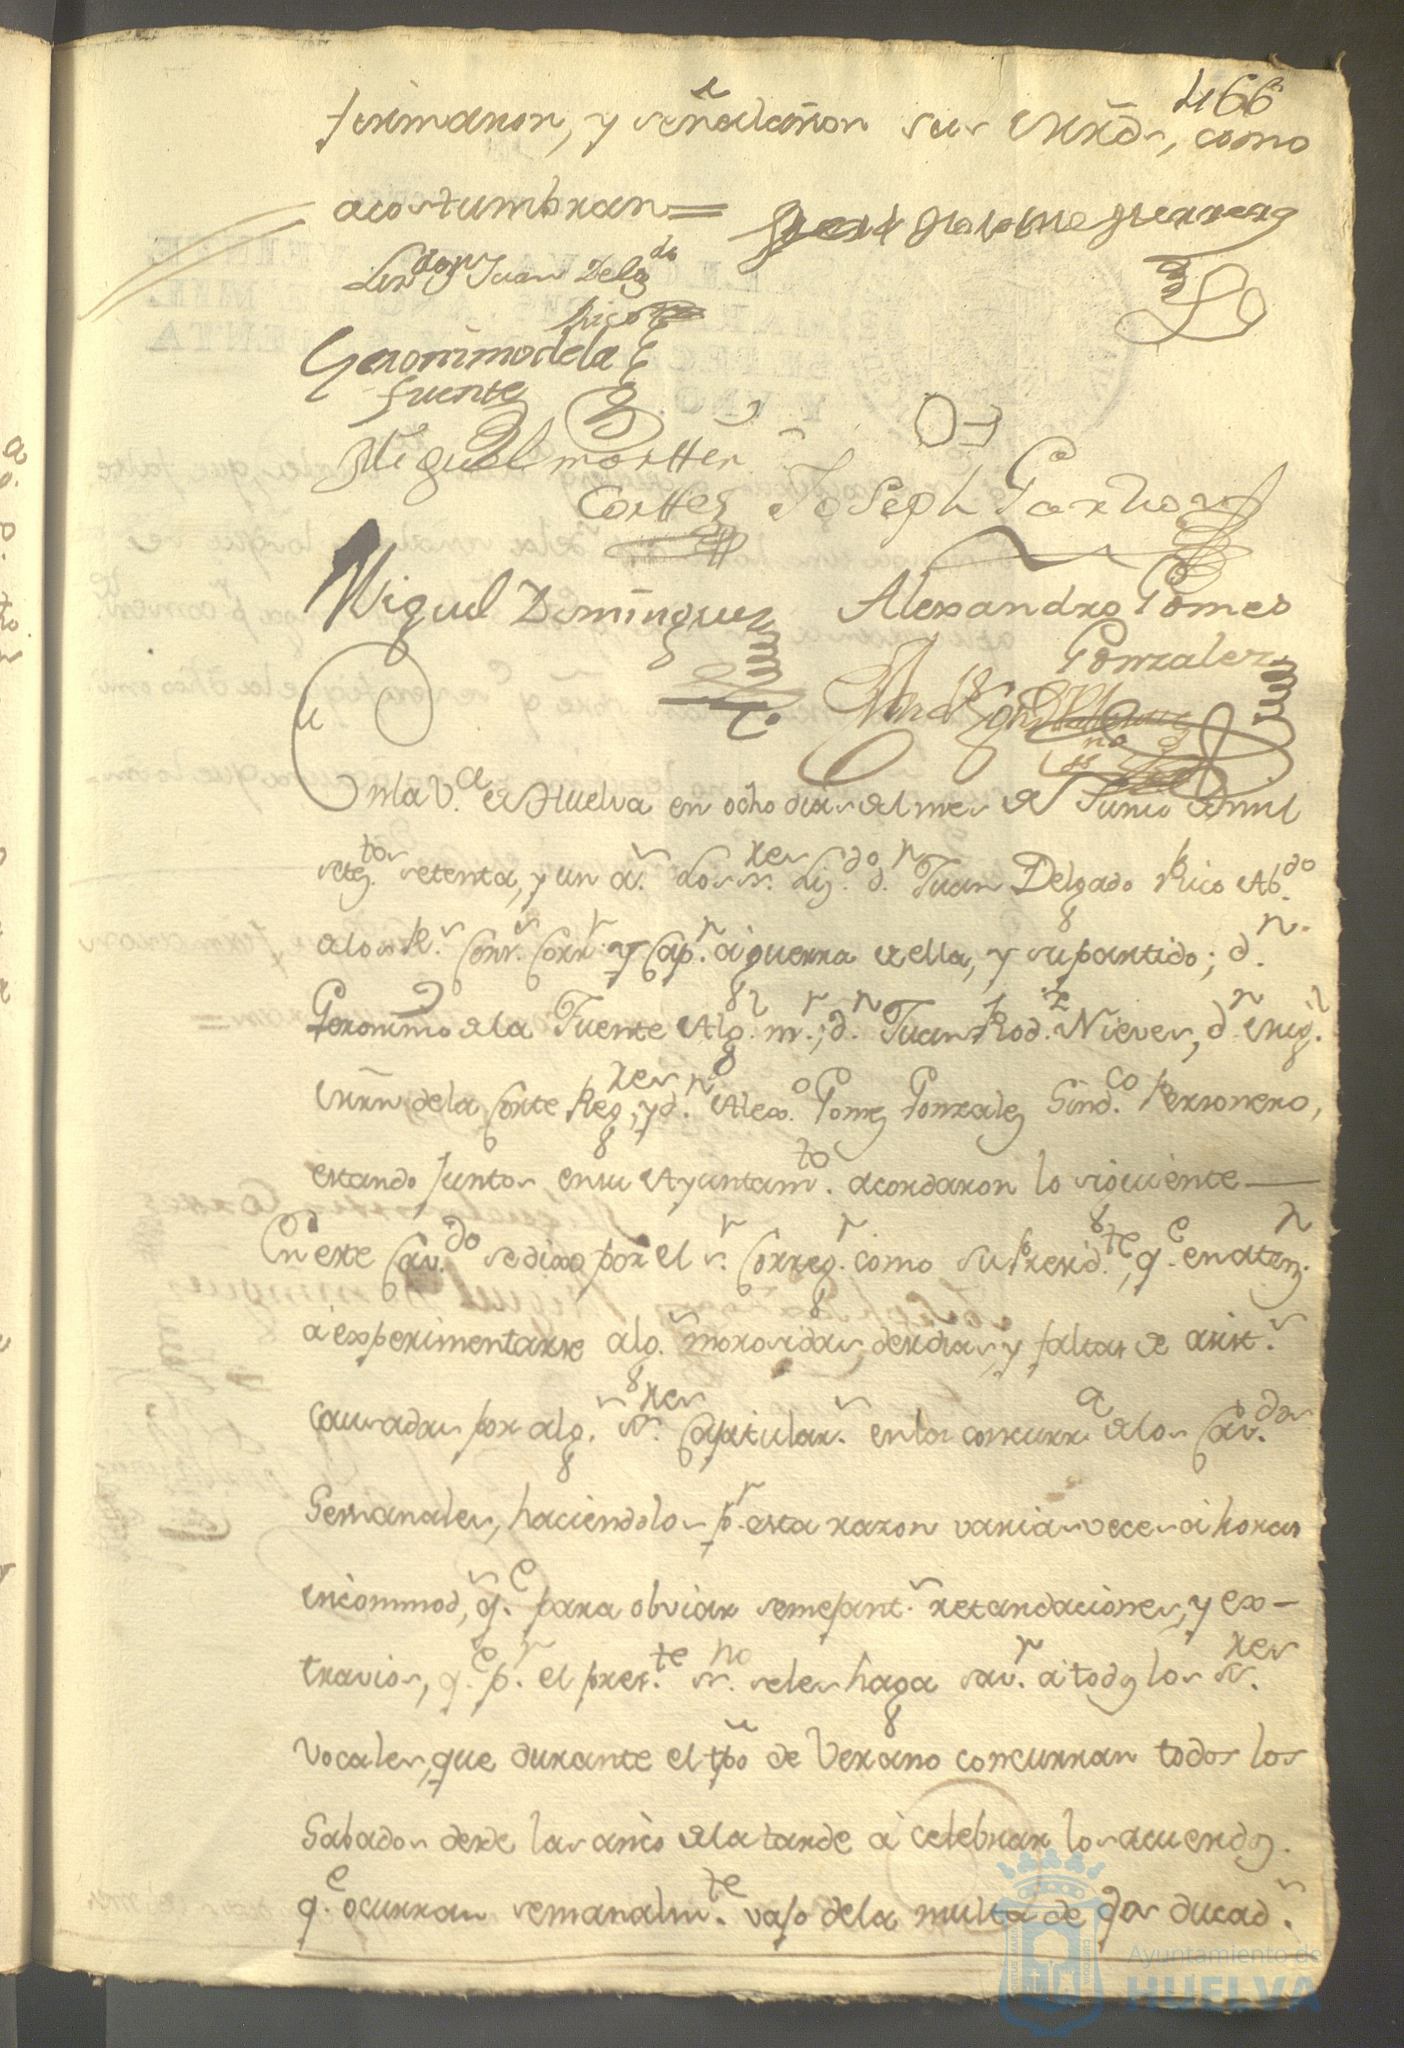 466
firmaron, y señalaron sus mrds, como
acostumbran=
Lizdo dn Juan Delgdo
Rico
Geronimo dela
fuente
Miguel mortten
Corttes
Joseph Garzon
Miguel Dominguez
Alexandro Gomes
Gonzalez
En la V.a de Huelva en ocho dias del mes de Junio de mil
seteztos setenta, y un a.s los ss.res Liz.do d.n Juan Delgado Rico Ab.do
de los R.s Cons.s Corr.r y Cap.n a guerra de ella, y su partido; d.n
Geronimo de la Fuente Alg.l m.r; d.n Juan Rod.z Nieves, d.n Mig.l
Mrñ de la Corte Reg.res, y d.n Alex.o Gomez Gonzalez Sind.co Personero,
estando Juntos en su Ayuntam.to acordaron lo siguiente
En este Cav.do se dixo por el s.r Correg.r como su Presid.te, q.e en atenz.n
à experimentarse alg.s morosidades, desidias, y faltas de asist.s
causadas por alg.s ss.res Capitular.s en la concurr.a de los Cav.dos
Semanales, haciendolos p.r esta razon varias veces à horas
incommod.s, q.e para obviar semejant.s retardaciones, y ex-
travios, q.e p.r el pres.te ss.no se les haga sav.r à todos los ss.res
Vocales, que durante el tpo de Verano concurran todos los
Sabados desde las cinco de la tarde à celebrar los acuerdos.
q.e ocurran semanalm.te vajo de la multa de dos ducad.s
Ayuntamiento de
HUELVA